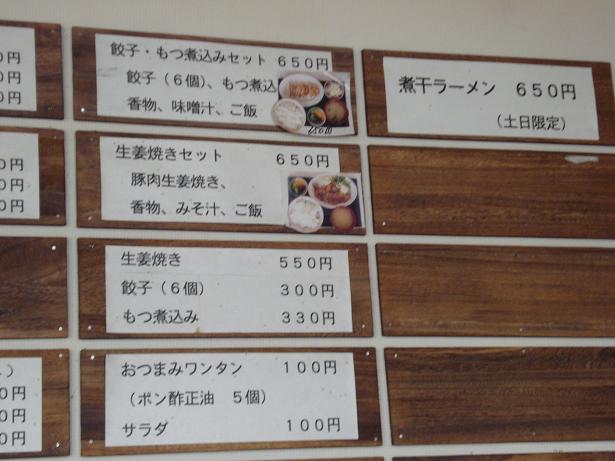 餃子・もつ煮込みセット　６５０円
餃子（６個）、もつ煮込
香物、味噌汁、ご飯
650円
煮干ラーメン　６５０円
（土日限定）
生姜焼きセット　６５０円
豚肉生姜焼き、
香物、みそ汁、ご飯
生姜焼き　５５０円
餃子（６個）　３００円
もつ煮込み　３３０円
おつまみワンタン　１００円
（ポン酢正油　５個）
サラダ　１００円
０円
０円
０円
０円
０円
０円
０円
０円
０円